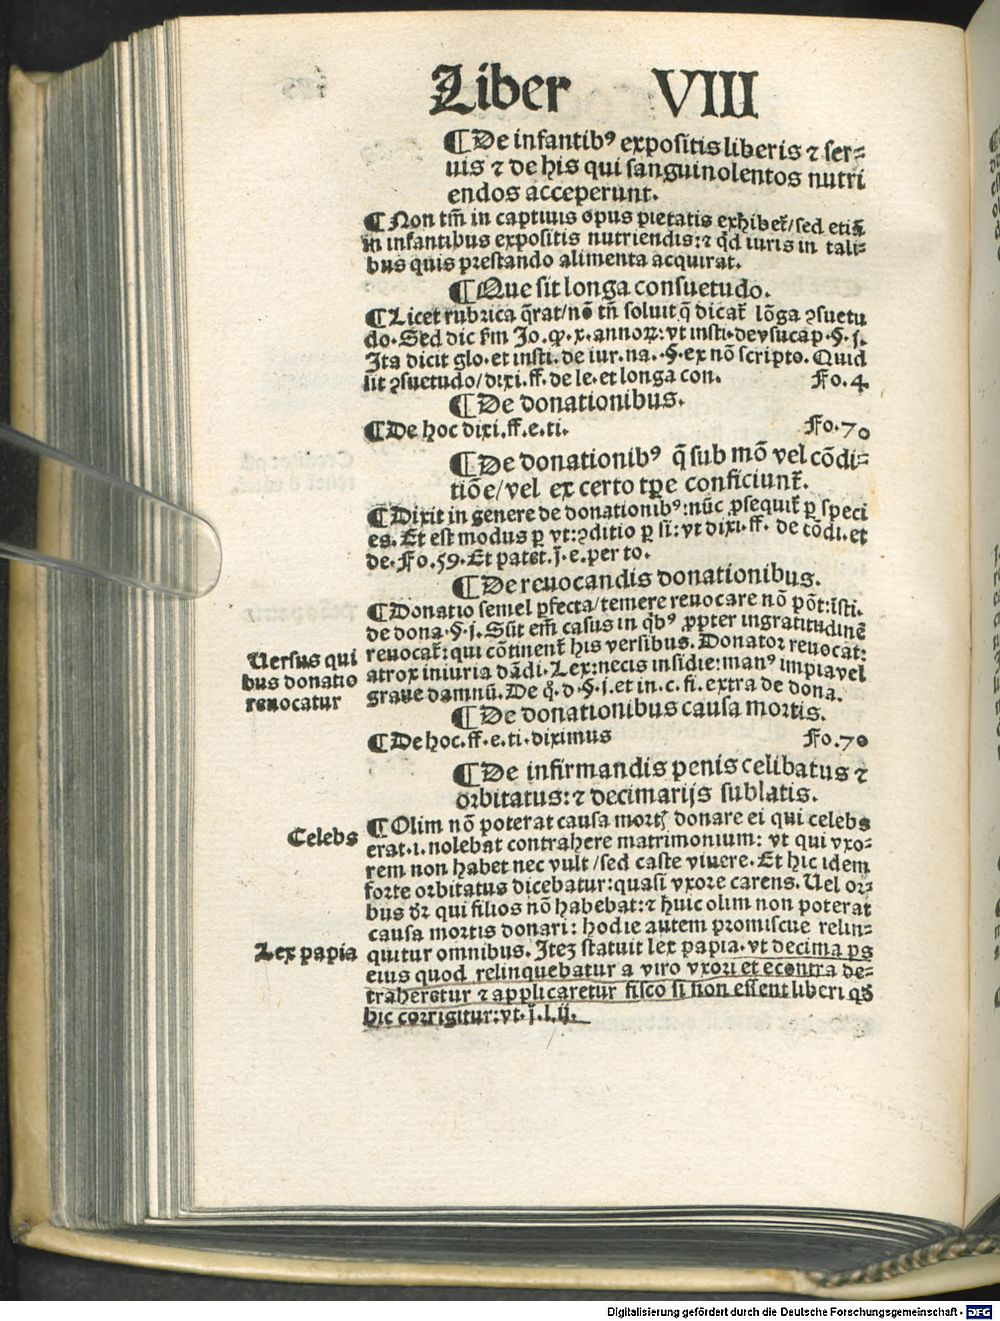 Liber VIII
¶De infantibꝰ expositis liberis ⁊ ser⸗
uis ⁊ de his qui sanguinolentos nutri
endos acceperunt.
¶Non tm̄ in captiuis opus pietatis exhibet᷑/sed etiā
in infantibus expositis nutriendis:⁊ qd̄ iuris in tali⸗
bus quis prestando alimenta acquirat.
¶Que sit longa consuetudo.
¶Licet rubrica q̄rat/nō tn̄ soluit q̄ dicat᷑ lōga ꝯsuetu
do. Sed dic ẜm Jo. ꝙ.x.annoꝝ:vt insti.de vsucap.§.j.
Ita dicit glo.et insti.de iur.na..§.ex nō scripto. Quid
sit ꝯsuetudo/dixi.ff.de le.et longa con. Fo.4.
¶De donationibus.
¶De hoc dixi.ff.e.ti. Fo.70
¶De donationibꝰ q̄ sub mō vel cōdi⸗
tiōe/vel ex certo tp̄e conficiunt᷑.
¶Dixit in genere de donationibꝰ:nūc ꝓsequit᷑ ꝑ speci
es. Et est modus ꝑ vt:ꝯditio ꝑ si:vt dixi.ff. de cōdi.et
de.Fo.59.Et patet.j.e.per to.
¶De reuocandis donationibus.
¶Donatio semel ꝑfecta/temere reuocare nō pōt:īsti.
de dona.§.j. Sūt em̄ casus in qbꝰ ꝓpter ingratitudinē
reuocat᷑:qui cōtinent᷑ his versibus. Donator reuocat:
atrox iniuria dādi. Lex:necis insidie:manꝰ impia vel
graue damnū. De q̄.d.§.j.et in.c.fi.extra de dona.
Uersus qui
bus donatio
reuocatur
¶De donationibus causa mortis.
¶De hoc.ff.e.ti.diximus Fo.70
¶De infirmandis penis celibatus ⁊
orbitatus:⁊ decimarijs sublatis.
Celebs
¶Olim nō poterat causa mortꝭ donare ei qui celebs
erat.i.nolebat contrahere matrimonium: vt qui vxo⸗
rem non habet nec vult/sed caste viuere. Et hic idem
forte orbitatus dicebatur:quasi vxore carens. Uel or⸗
bus dr̄ qui filios nō habebat:⁊ huic olim non poterat
causa mortis donari: hodie autem promiscue relin⸗
Lex papia
quitur omnibus. Iteꝫ statuit lex papia.vt decima ꝑs
eius quod relinquebatur a viro vxori et econtra de⸗
traheretur ⁊ applicaretur fisco si non essent liberi qd̄
hic corrigitur:vt.j.l.ij.
Digitalisierung gefördert durch die Deutsche Forschungsgemeinschaft - DFG